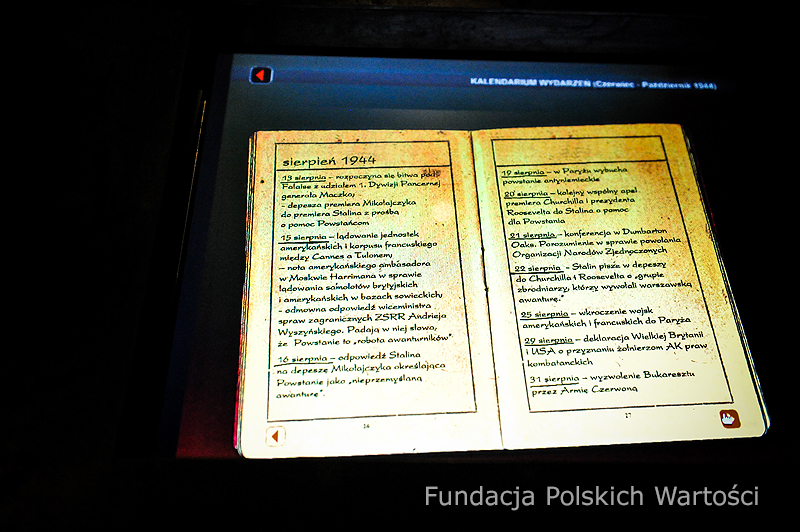 KALENDARIUM WYDARZEŃ (Czerwiec - Październik 1944)
sierpień 1944
13 sierpnia - rozpoczyna się bitwa pod
Falaise z udziałem 1. Dywizji Pancernej
generała Maczka;
- depesza premiera Mikołajczyka
do premiera Stalina z prośbą
o pomoc Powstańcom
15 sierpnia - lądowanie jednostek
amerykańskich i korpusu francuskiego
między Cannes a Tulonem;
- nota amerykańskiego ambasadora
w Moskwie Harrimana w sprawie
lądowania samolotów brytyjskich
i amerykańskich w bazach sowieckich;
- odmowna odpowiedź wiceministra
spraw zagranicznych ZSRR Andrieja
Wyszyńskiego. Padają w niej słowa,
że Powstanie to „robota awanturników"
16 sierpnia - odpowiedź Stalina
na depeszę Mikołajczyka określająca
Powstanie jako „nieprzemyślaną
awanturę".
16
19 sierpnia - w Paryżu wybucha
powstanie antyniemieckie
20 sierpnia - kolejny wspólny apel
premiera Churchilla i prezydenta
Roosevelta do Stalina o pomoc
dla Powstania
21 sierpnia - konferencja w Dumbarton
Oaks. Porozumienie w sprawie powołania
Organizacji Narodów Zjednoczonych
22 sierpnia - Stalin pisze w depeszy
do Churchilla i Roosevelta o „grupie
zbrodniarzy, którzy wywołali warszawską
awanturę."
25 sierpnia - wkroczenie wojsk
amerykańskich i francuskich do Paryża
29 sierpnia - deklaracja Wielkiej Brytanii
i USA o przyznaniu żołnierzom AK praw
kombatanckich
31 sierpnia - wyzwolenie Bukaresztu
przez Armię Czerwoną
17
Fundacja Polskich Wartości